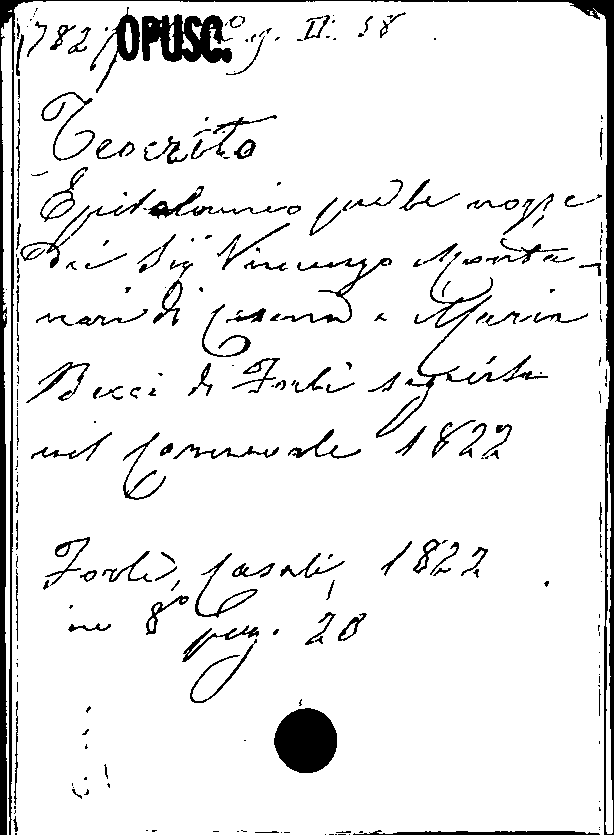 OPUSC. II. 58
Teocrito
Epitalamio per le nozze
dei Sig Vincenzo Monta-
nari di Cesena e Maria
Becci di Forlì seguite
nel Carnevale 1822
Forlì, Casali, 1822
in 8º pag. 20